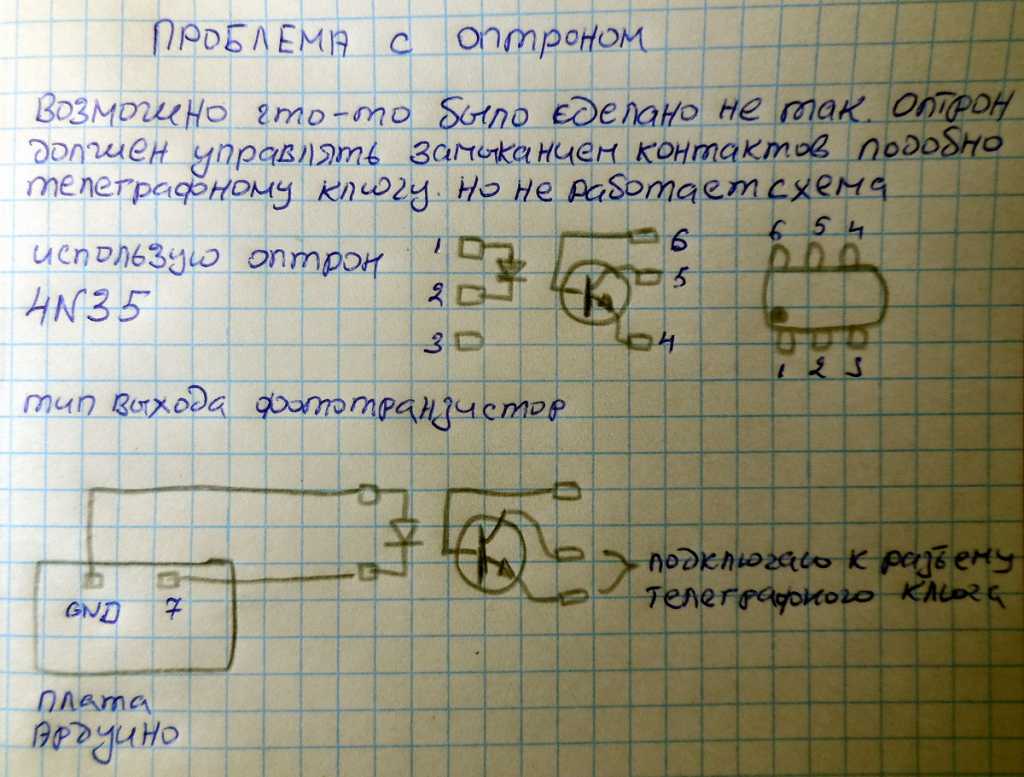 ПРОБЛЕМА С ОПТРОНОМ
ВОЗМОЖНО ЧТО-ТО БЫЛО СДЕЛАНО НЕ ТАК. ОПТРОН
ДОЛЖЕН УПРАВЛЯТЬ ЗАМЫКАНИЕМ КОНТАКТОВ ПОДОБНО
ТЕЛЕГРАФНОМУ КЛЮЧУ. НО НЕ РАБОТАЕТ СХЕМА
ИСПОЛЬЗУЮ ОПТРОН
4N35
1
2
3
6
5
4
6 5 4
1 2 3
ТИП ВЫХОДА ФОТОТРАНЗИСТОР
GND 7
ПОДКЛЮЧАЮ К РАЗЪЕМУ
ТЕЛЕГРАФНОГО КЛЮЧА
ПЛАТА
АРДУИНО